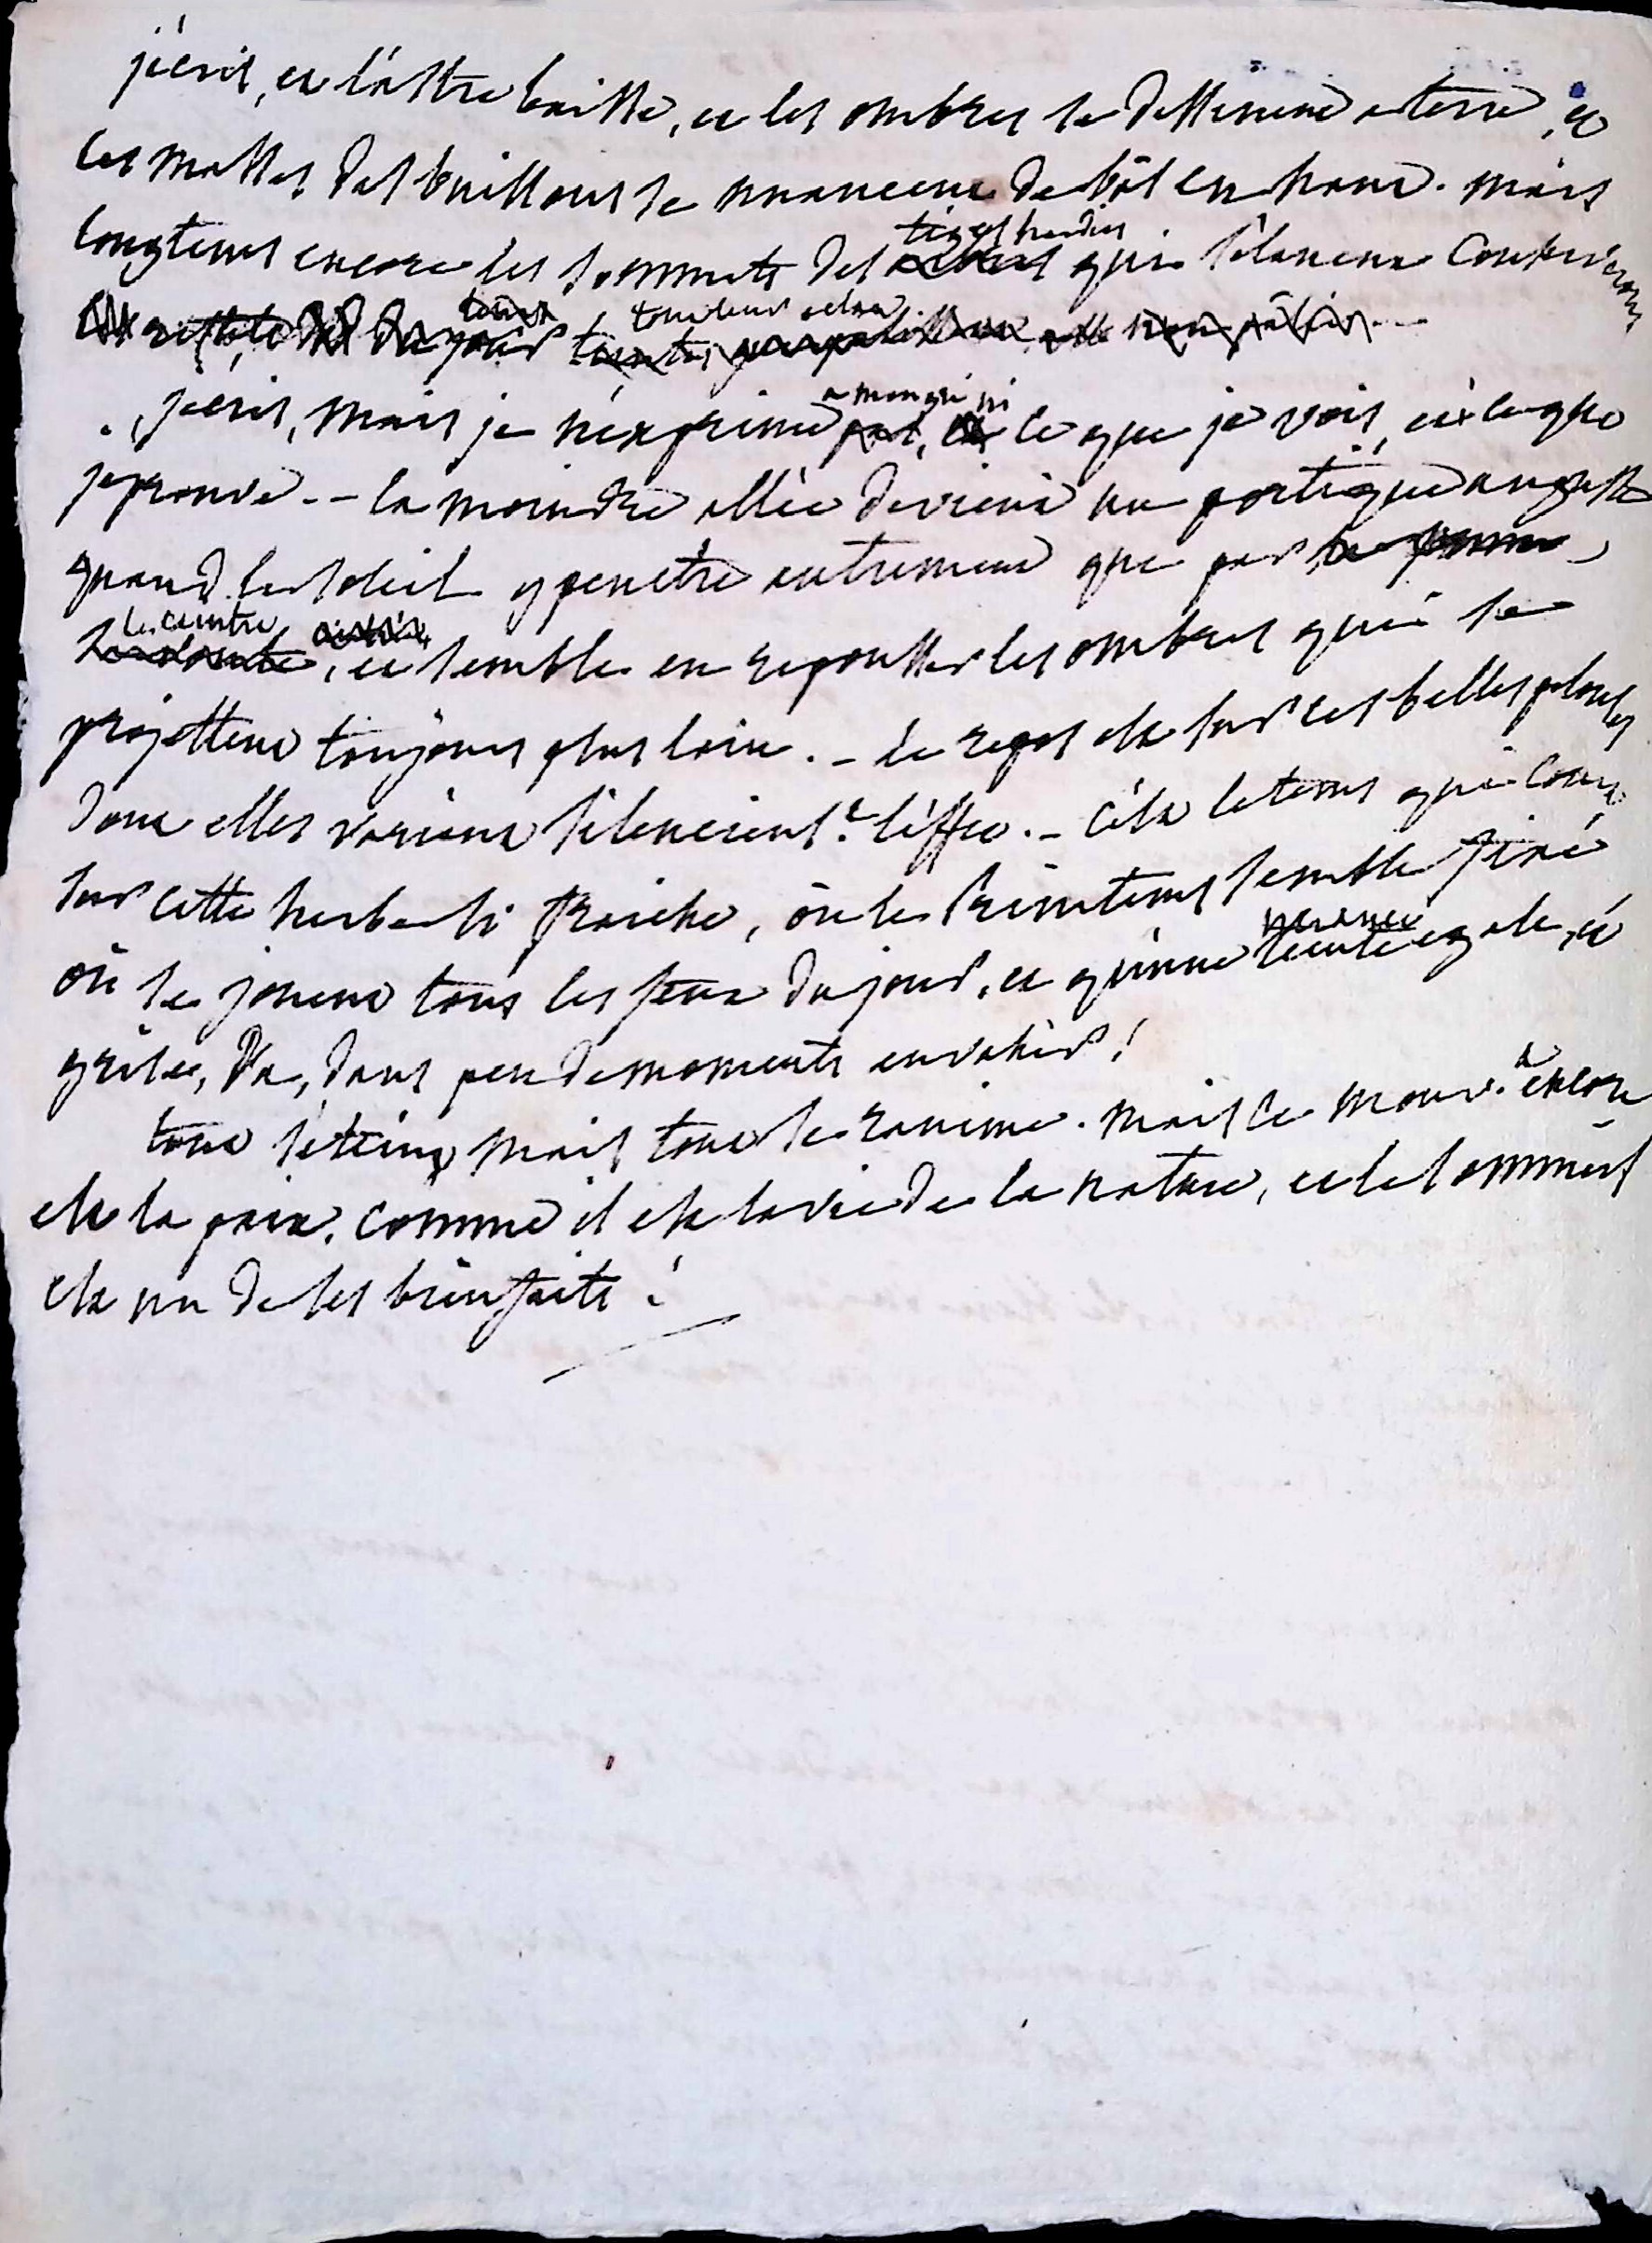 j'écris, et l'astre baisse, et les ombres se dessinent a terre, et
les masses des buissons se nuancent de bas en haut. mais
longtems encore les sommets des tiges hardies qui s'élancent conserveront
reflets du jour tout leur éclat
j'écris, mais je n'exprime a mon gré ni ce que je vois, ni ce que
j'eprouve. -- la moindre allée devient un portique auguste
quand le soleil y penetre autrement que par
le ceintre, et semble en repousser les ombres qui se
projettent toujours plus loin. - le repos est sur ces belles pelouses
dont elles varient silencieusᵗ l'effet. - c'est le tems qui court
sur cette herbe si fraiche, où le Printems semble fixé
où se jouent tous les feux du jour, et qu'une nuance egale, et
grise, va, dans peu de moments envahir!
tout s'éteint mais tout se ranime. mais ce mouv.ᵗ encore
est la paix, comme il est la vie de la nature, et le sommeil
est un de ses bienfaits!